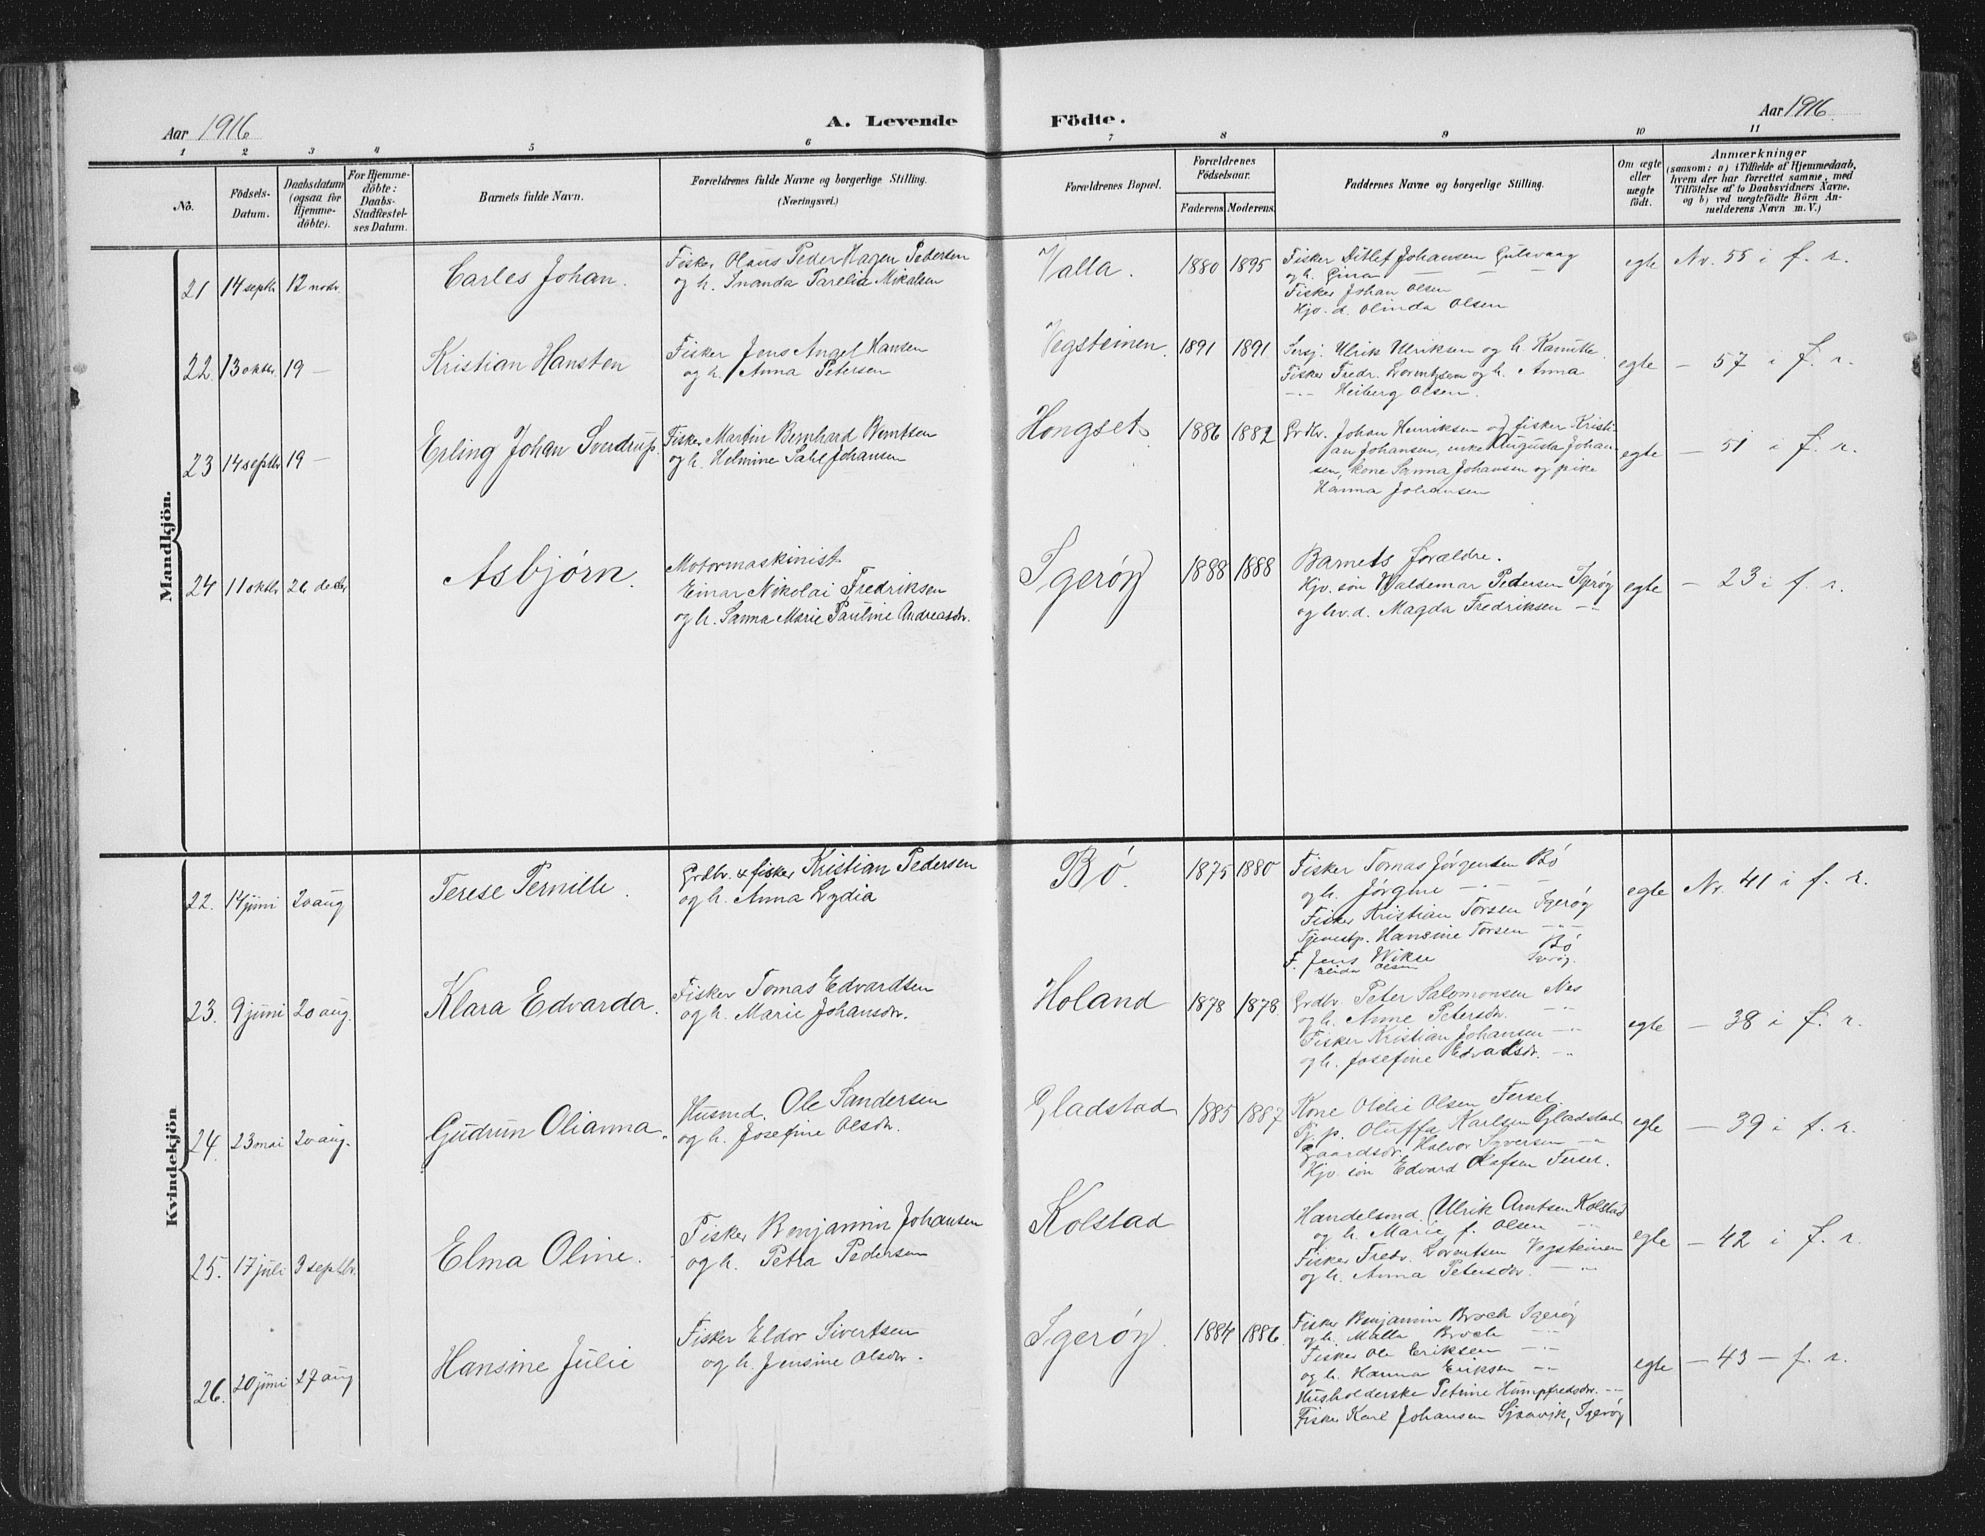 Aar 1916
A. Levende
Födte.
Aar 1916.
1 2 3 4 5 6 7 8 9 10 11
No.
Födsels-
Datum.
Daabsdatum
(ogsaa for
Hjemme-
döbte).
For Hjemme-
döbte:
Daabs-
Stadfæstel-
ses Datum.
Barnets fulde Navn.
Forældrenes fulde Navne og borgerlige Stilling.
(Næringsvei.)
Forældrenes Bopæl.
Forældrenes
Födselsaar.
Faderens.
Moderens.
Faddernes Navne og borgerlige Stilling.
Om ægte
eller
uægte
født.
Anmærkninger
(saasom: a) i Tilfælde af Hjemmedaab,
hvem der har forrettet samme, med
Tilföielse af to Daabsvidners Navne.
og b) ved uægtefödte Börn An-
melderens Navn m. V.)
Mandkjön.
21 14 septb 12 novbr.
Carles Johan.
Fisker Olaus Peder Hagen Pedersen
og h. Inanda Parelia Mikalsen
Valla.
1880 1895
Fisker Ditlef Johansen Gulsvaag
og h. Gina — — —
Fisker Johan Olsen
Hjv. d. Olinda Olsen
egte
Nr. 55 i f. r.
22. 13 oktbr. 19 —
Kristian Hansten
Fisker Jens Angel Hansen
og h. Anna Petersen
Vegsteinen.
1891 1891
Ulrik Ulriksen og h.
Fisker Fredr. Lorentzen og h. Anna
-"- Heiberg Olsen.
egte
— 57 i f. r.
23 14 septbr 19 —
Erling Johan Sverdrup.
Fisker Martin Bernhard Berntsen
og h. Helmine Sahl Johansen
Hongset.
1886 1882
Grbr. Johan Henriksen og fisker Kristi-
an Johansen, enke Augusta Johan-
sen, kone Sanna Johansen og pike
Hanna Johansen
egte
— 51 i f. r.
24 11 oktbr 26 decbr
Asbjørn.
Motormaskinist
Einar Nikolai Fredriksen
og h. Sanna Marie Pauline Andreasdr.
Igerøy
1888 1888
Barnets forældre.
Hjv. søn Waldemar Pedersen Igerøy
og hv. d. Magda Fredriksen -"-
egte
— 23 i f. r.
Kvindekjön
22. 14 juni 20 aug
Terese Pernille.
Grdbr. & fisker Kristian Pedersen
og h. Anna Lydia
Bø.
1875 1880
Fisker Tomas Jørgensen Bø
og h. Jørgine -"- -"-
Fisker Kristian Torsen Igerøy
Tjenestp. Hansine Torsen -"-
F. Jens Wikse Bø
Olsen Igerøy.
egte
Nr. 41 i f. r.
23. 9 juni 20 aug.
Klara Edvarda.
Fisker Tomas Edvardsen
og h. Marie Johansdr.
Holand
1878 1878
Grdbr. Peter Salomonsen Nes
og h. Anne Petersdr. -"-
Fisker Kristian Johansen -"-
og h. Josefine Edvardsdr. -"-
egte
— 38 i f. r.
24. 23 mai 20 aug.
Gudrun Olianna.
Husmd. Ole Sandersen
og h. Josefine Olsdr.
Gladstad
1885 1887
Kone Otelie Olsen Terset.
Tj. p. Oluffa Karlsen Gladstad
Gaardsdr. Halvor Syversen -"-
Hjv. søn Edvard Olafsen Terset.
egte
— 39 i f. r.
25. 17 juli 3 septbr.
Elma Oline.
Fisker Benjamin Johansen
og h. Petra Pedersen
Kolstad
Handelsmd. Ulrik Arntsen Kolstad
og h. Marie f. Olsen -"-
Fisker Fredr. Lorentsen Vegsteinen
og h. Anna Petersdr. -"-
egte
— 42 i f. r.
26. 20 juni 27 aug
Hansine Julie
Fisker Eldor Sivertsen
og h. Jensine Olsdr.
Igerøy.
1884 1886.
Fisker Benjamin Broch Igerøy
og h. Malla Broch -"-
Fisker Ole Eriksen -"-
og h. Hanna Eriksen -"-
Husholderske Petrine Humpfredsdr. -"-
Fisker Karl Johansen Sjaavik, Igerøy
egte
— 43 — f. r.